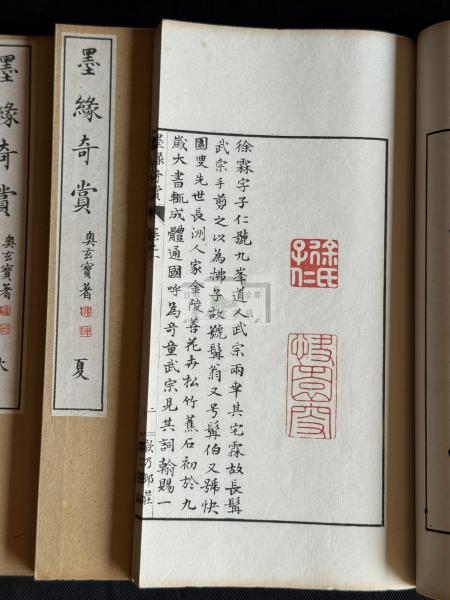 徐氏子仁
快園叟
徐霖字子仁號九峯道人武宗兩幸其宅霖故長髯
武宗手剪之以為拂子故號髯翁又号髯伯又號快
園叟先世長洲人家金陵善花卉松竹蕉石初於九
歲大書輒成體通國呼為奇童武宗見其詞翰賜一
墨緣奇賞
墨緣奇賞 奥玄寶著 夏
墨緣奇賞 奥玄寶著